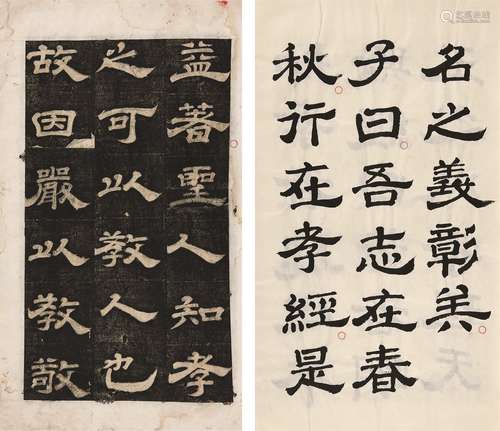 益著聖人知孝
之可以教人也
故因嚴以教敬
名之義彰矣
子曰吾志在春
秋行在孝經是